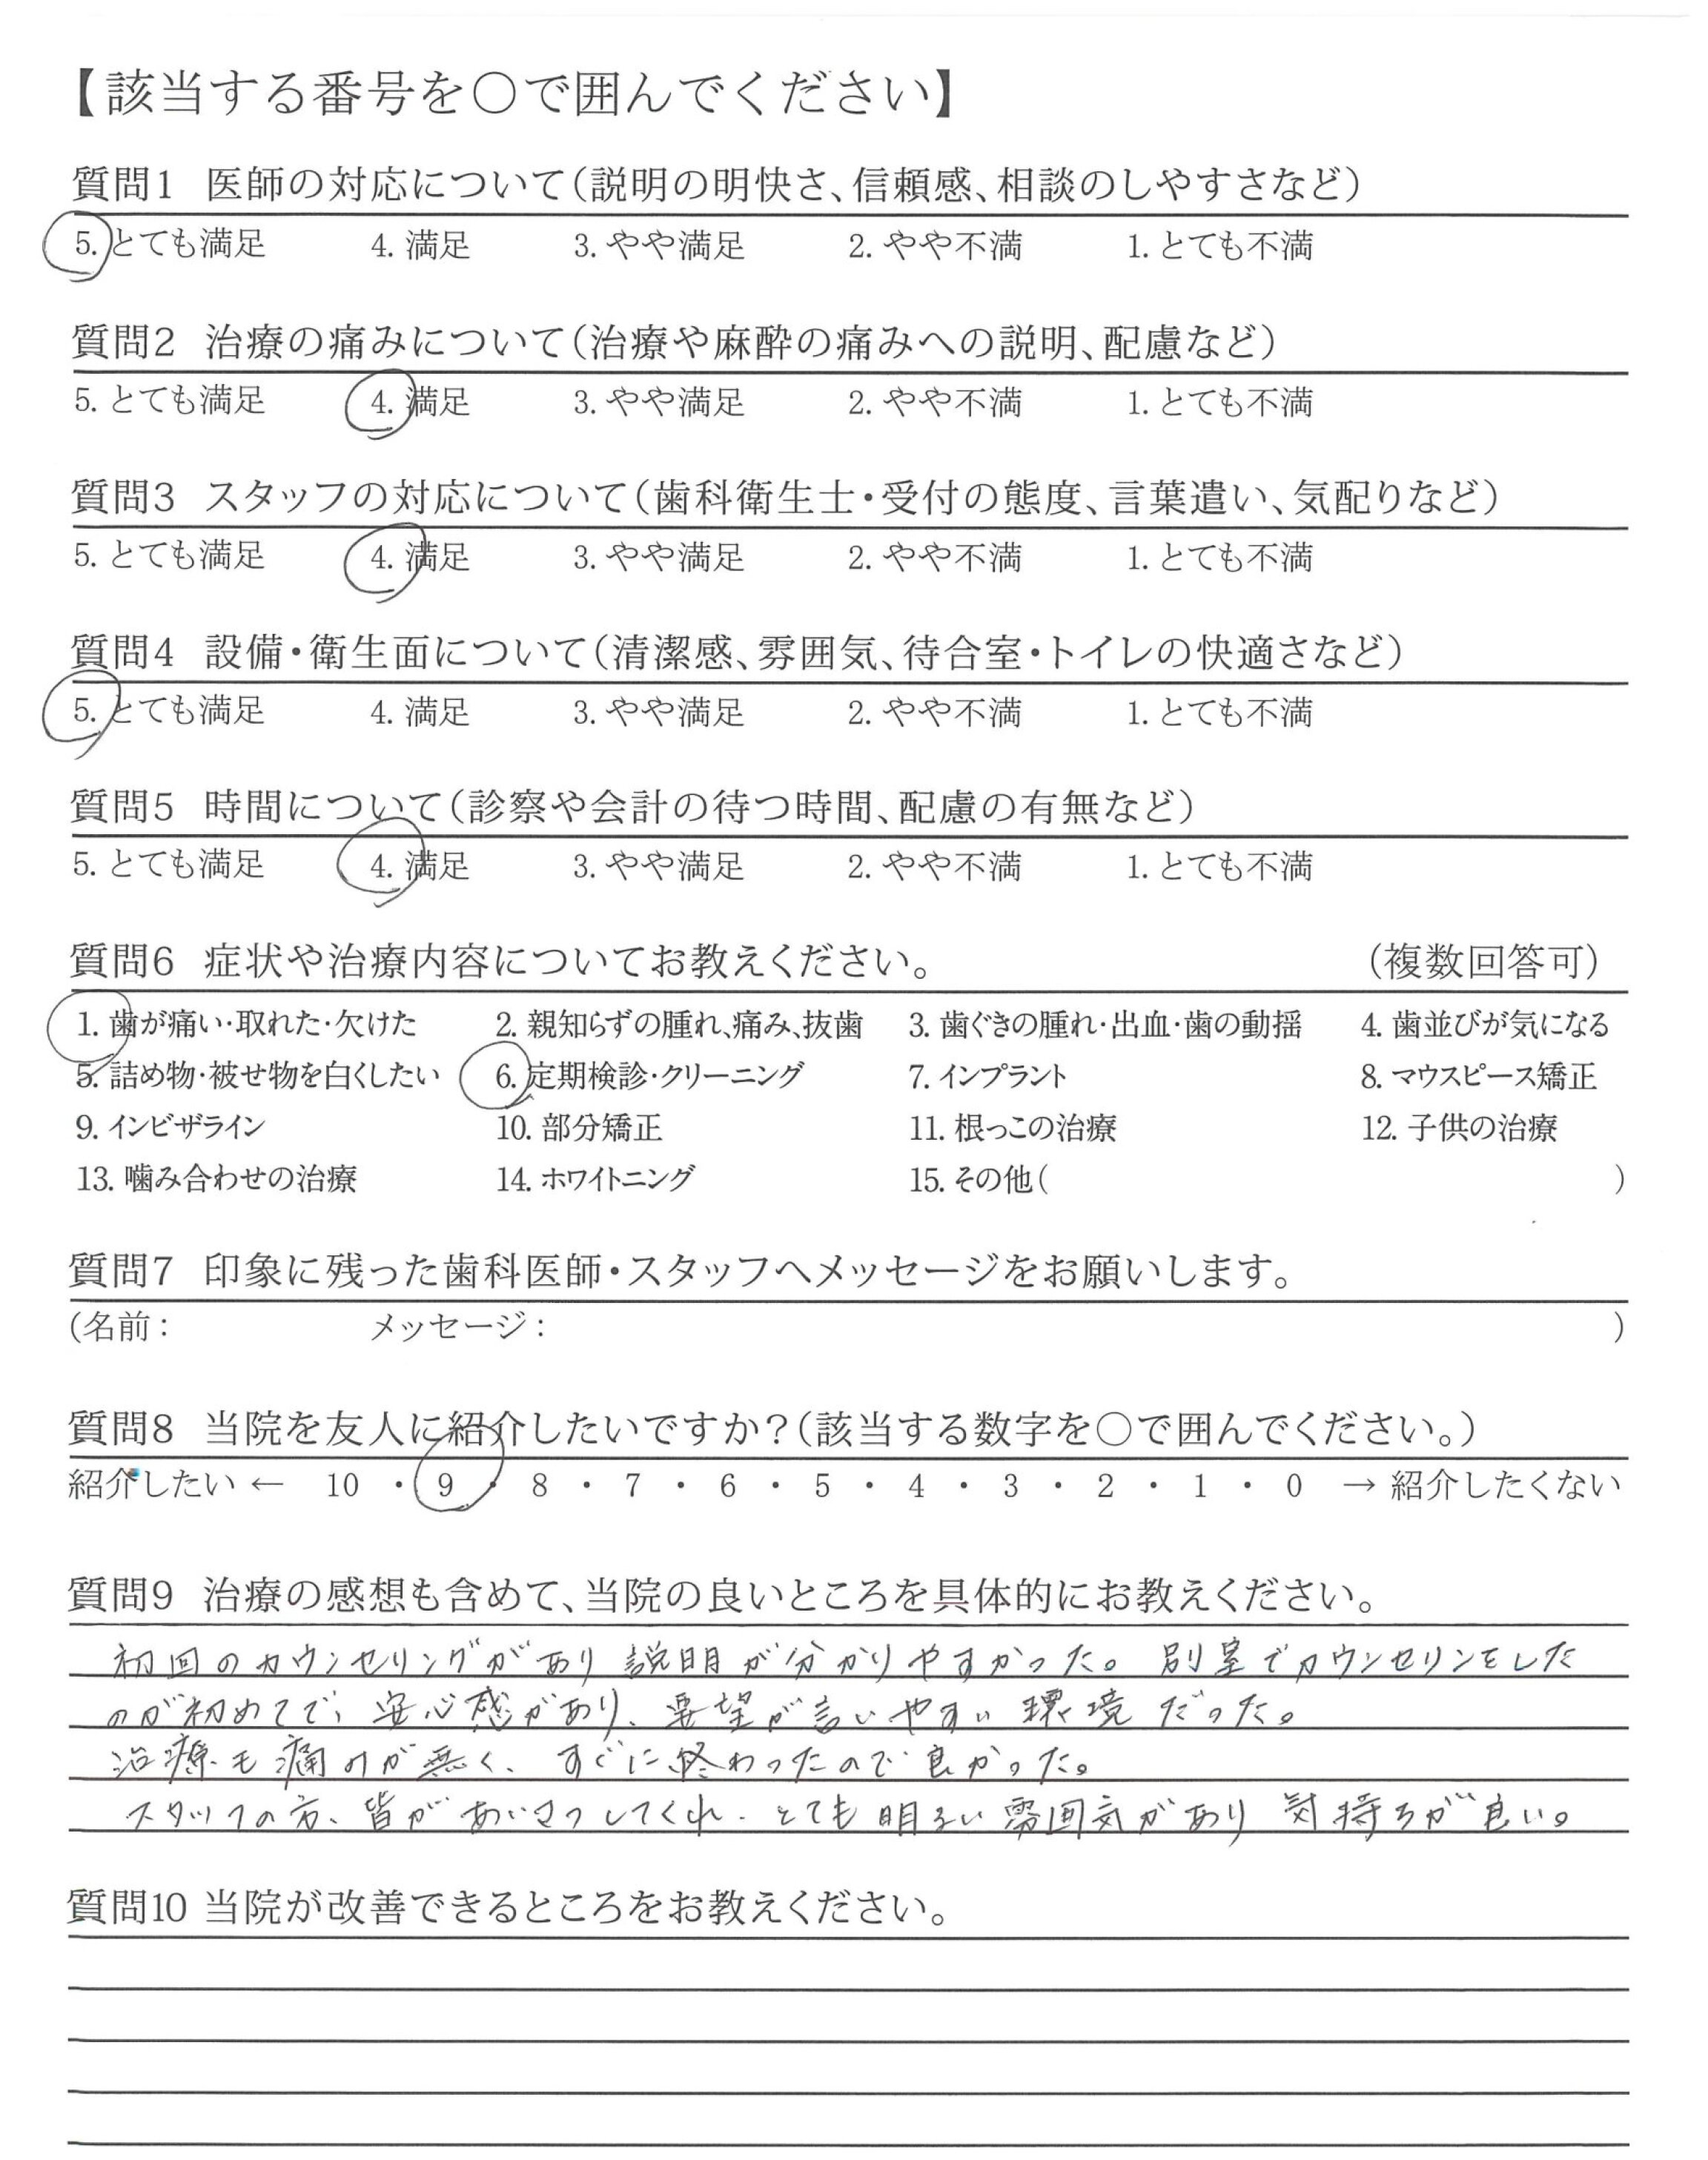 【該当する番号を〇で囲んでください】
質問1 医師の対応について(説明の明快さ、信頼感、相談のしやすさなど)
5. とても満足 4. 満足 3. やや満足 2. やや不満 1. とても不満
質問2 治療の痛みについて(治療や麻酔の痛みへの説明、配慮など)
5. とても満足 4. 満足 3. やや満足 2. やや不満 1. とても不満
質問3 スタッフの対応について(歯科衛生士・受付の態度、言葉遣い、気配りなど)
5. とても満足 4. 満足 3. やや満足 2. やや不満 1. とても不満
質問4 設備・衛生面について(清潔感、雰囲気、待合室・トイレの快適さなど)
5. とても満足 4. 満足 3. やや満足 2. やや不満 1. とても不満
質問5 時間について(診察や会計の待つ時間、配慮の有無など)
5. とても満足 4. 満足 3. やや満足 2. やや不満 1. とても不満
質問6 症状や治療内容についてお教えください。 (複数回答可)
1. 歯が痛い・取れた・欠けた 2. 親知らずの腫れ、痛み、抜歯 3. 歯ぐきの腫れ・出血・歯の動揺 4. 歯並びが気になる
5. 詰め物・被せ物を白くしたい 6. 定期検診・クリーニング 7. インプラント 8. マウスピース矯正
9. インビザライン 10. 部分矯正 11. 根っこの治療 12. 子供の治療
13. 噛み合わせの治療 14. ホワイトニング 15. その他( )
質問7 印象に残った歯科医師・スタッフへメッセージをお願いします。
(名前: メッセージ: )
質問8 当院を友人に紹介したいですか?(該当する数字を〇で囲んでください。)
紹介したい ← 10 ・ 9 ・ 8 ・ 7 ・ 6 ・ 5 ・ 4 ・ 3 ・ 2 ・ 1 ・ 0 → 紹介したくない
質問9 治療の感想も含めて、当院の良いところを具体的にお教えください。
初回のカウンセリングがあり説明が分かりやすかった。別室でカウンセリンをした
のが初めてで、安心感があり、要望が言いやすい環境だった。
治療も痛みが無く、すぐに終わったので良かった。
スタッフの方、皆があいさつしてくれ、とても明るい雰囲気があり気持ちが良い。
質問10 当院が改善できるところをお教えください。